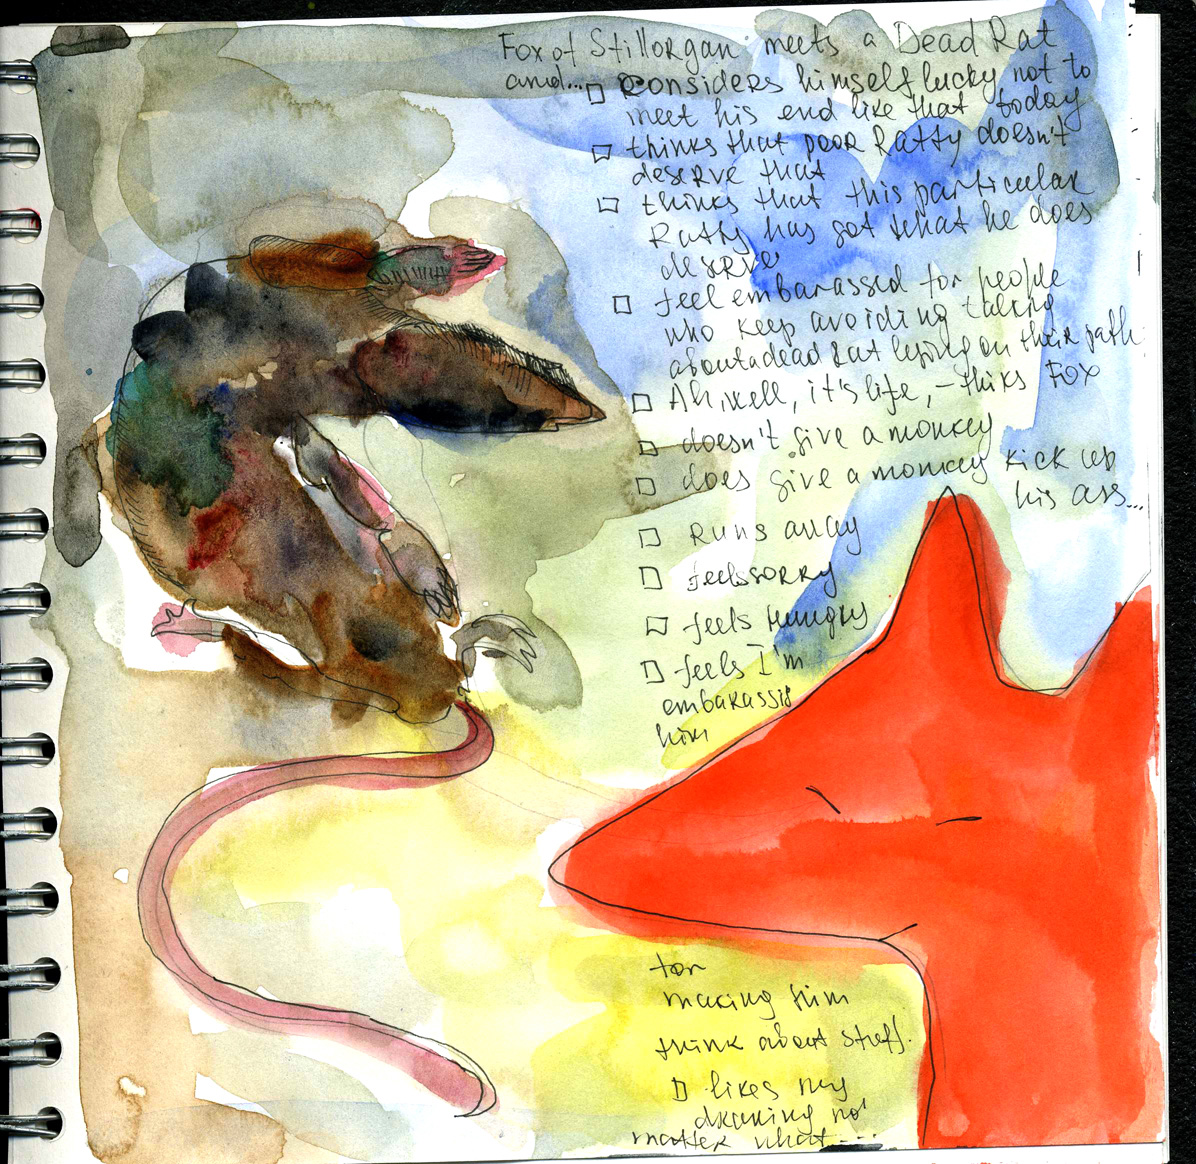 Fox of Stillorgan meets a Dead Rat
and... □ considers himself lucky not to
meet his end like that today
□ thinks that poor Ratty doesn't
deserve that
□ thinks that this particular
Ratty has got what he does
deserve
□ feel embarassed for people
who keep avoiding talking
about a dead Rat lying on their path
□ Ah, well, it's life, – thiks Fox
□ doesn't give a monkey
□ does give a monkey kick up
his ass...
□ Runs away
□ feels sorry
□ feels hungry
□ feels I'm
embarassig
him
for
making him
think about stuff.
□ likes my
drawing no
matter what....